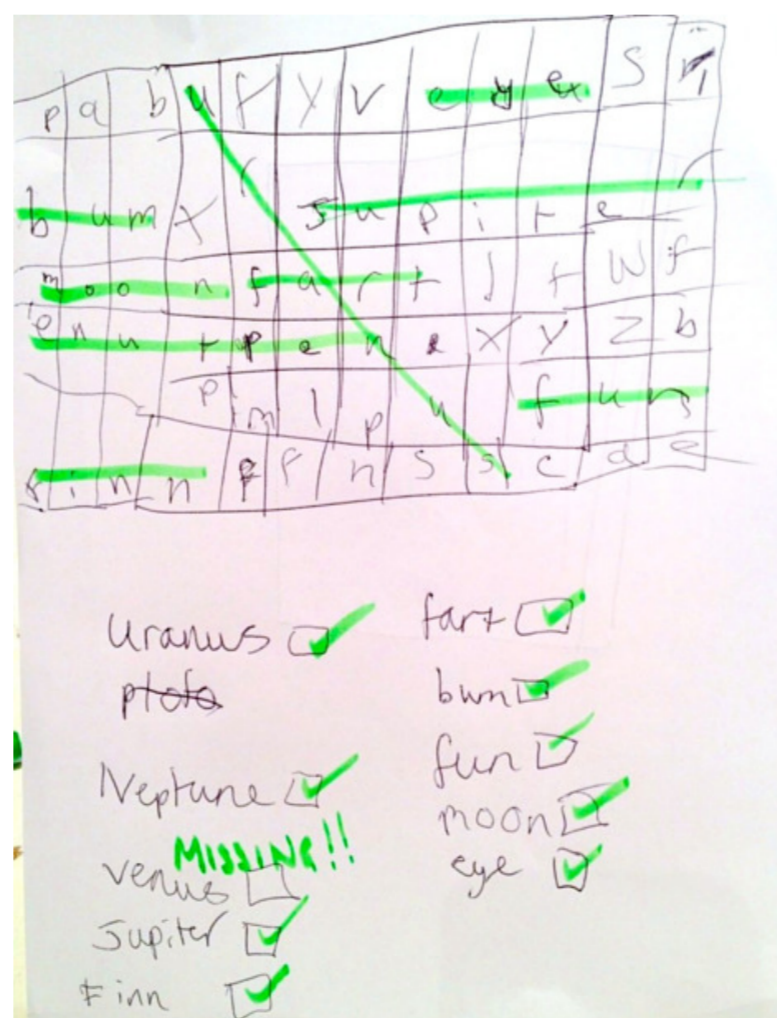 p a b u f y v e y e S
b u m x r J u p i t e r
m o o n f a r t J t W f
e n u t p e n e x y z b
p m l p u f u n
f i n n f f n s s c a e
Uranus
Neptune
MISSING!!
venus
Jupiter
Finn
fart
bum
fun
moon
eye